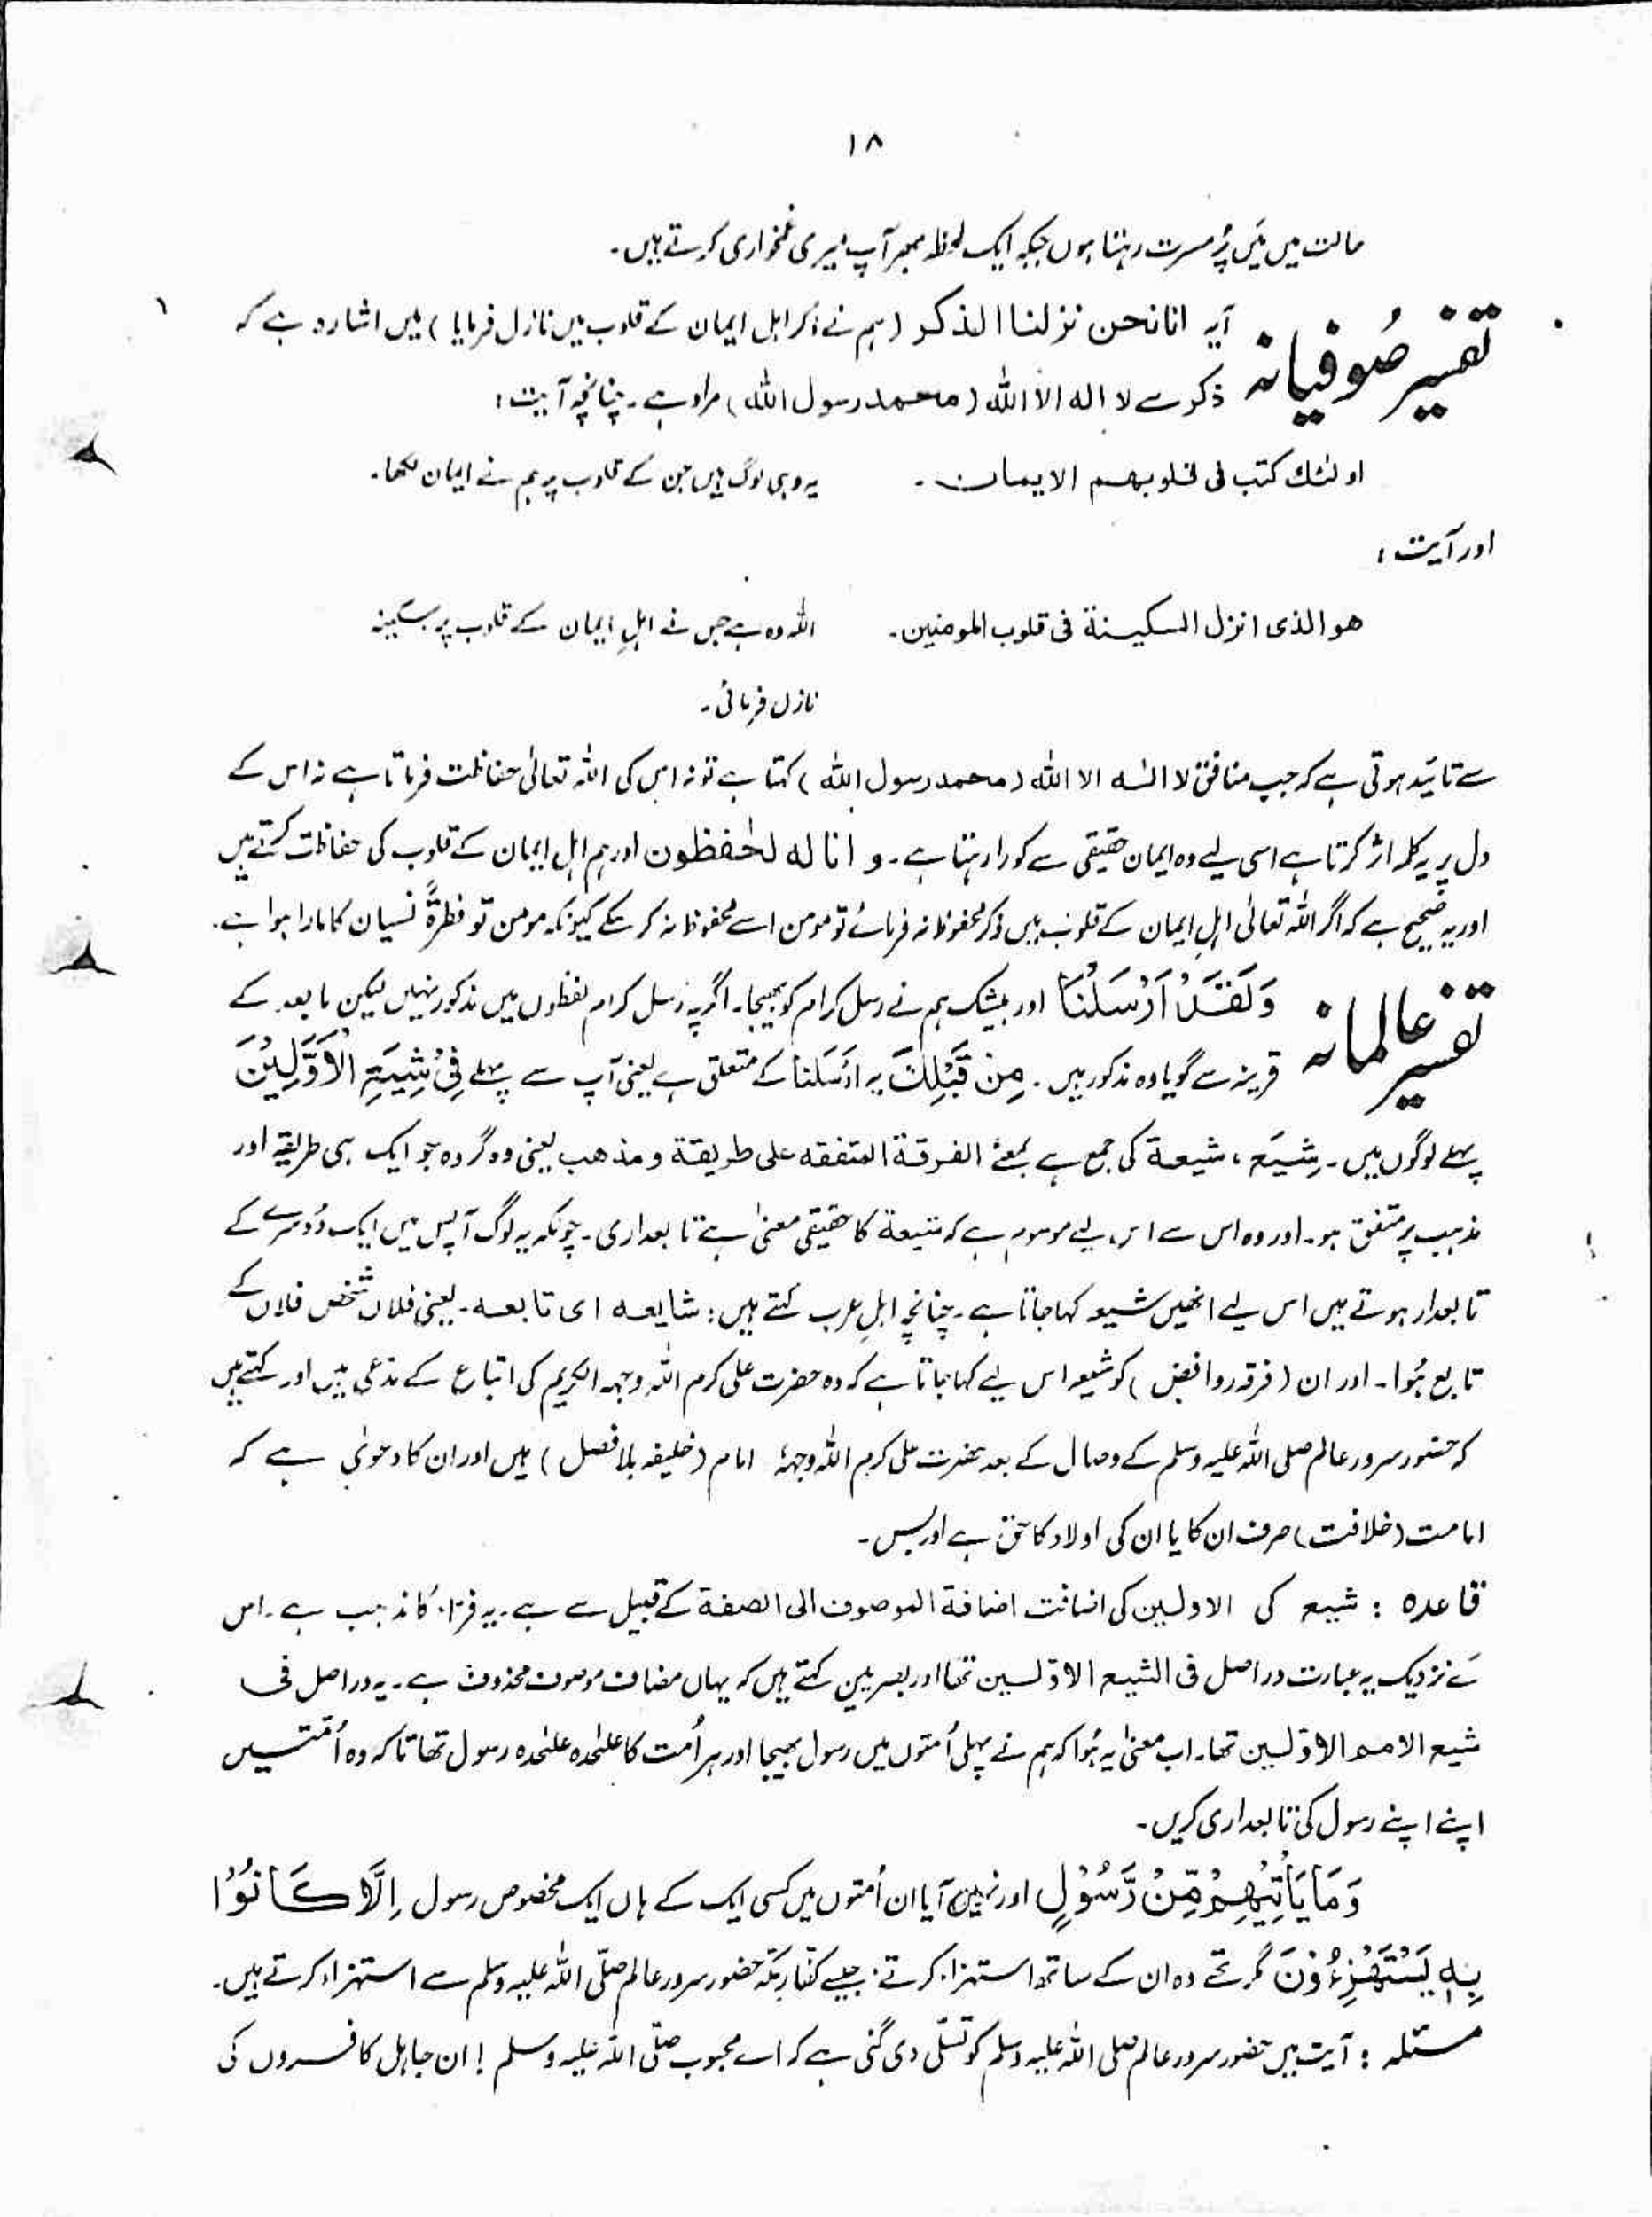 ۱۸
حالت میں مَیں پُر مسرت رہتا ہوں جبکہ ایک لحظہ بھر آپ میری غمخواری کرتے ہیں۔
تفسیر صُوفیانہ آیہ انا نحن نزلنا الذکر (ہم نے ذکر اہل ایمان کے قلوب میں نازل فرمایا) میں اشارہ ہے کہ
ذکر سے لا الہ الا اللہ (محمد رسول اللہ) مراد ہے۔ چنانچہ آیت:
اولئک کتب فی قلوبھم الایمان۔ یہ وہی لوگ ہیں جن کے قلوب پر ہم نے ایمان لکھا۔
اور آیت:
ھو الذی انزل السکینۃ فی قلوب المومنین۔ اللہ وہ ہے جس نے اہلِ ایمان کے قلوب پر سکینہ
نازل فرمائی۔
سے تائید ہوتی ہے کہ جب منافق لا الٰہ الا اللہ (محمد رسول اللہ) کہتا ہے تو نہ اس کی اللہ تعالیٰ حفاظت فرماتا ہے نہ اس کے
دل پر یہ کلمہ اثر کرتا ہے اسی لیے وہ ایمان حقیقی سے کورا رہتا ہے۔ و انا لہ لحٰفظون اور ہم اہل ایمان کے قلوب کی حفاظت کرتے ہیں
اور یہ صحیح ہے کہ اگر اللہ تعالیٰ اہلِ ایمان کے قلوب میں ذکر محفوظ نہ فرمائے تو مومن اسے محفوظ نہ کر سکے کیونکہ مومن تو فطرۃً نسیان کا مارا ہوا ہے۔
تفسیر عالمانہ وَلَقَدْ اَرْسَلْنَا اور بیشک ہم نے رسل کرام کو بھیجا۔ اگرچہ رسل کرام لفظوں میں مذکور نہیں لیکن مابعد کے
قرینہ سے گویا وہ مذکور ہیں۔ مِنْ قَبْلِکَ یہ اَرْسَلْنَا کے متعلق ہے یعنی آپ سے پہلے فِیْ شِیَعِ الْاَوَّلِیْنَ
پہلے لوگوں میں۔ شِیَع، شیعۃ کی جمع ہے بمعنے الفرقۃ المتفقہ علی طریقۃ و مذھب یعنی وہ گروہ جو ایک ہی طریقہ اور
مذہب پر متفق ہو۔ اور وہ اس سے اس لیے موسوم ہے کہ شیعۃ کا حقیقی معنیٰ ہے تابعداری۔ چونکہ یہ لوگ آپس میں ایک دُوسرے کے
تابعدار ہوتے ہیں اس لیے انھیں شیعہ کہا جاتا ہے۔ چنانچہ اہلِ عرب کہتے ہیں: شایعہ ای تابعہ۔ یعنی فلاں شخص فلاں کے
تابع ہُوا۔ اور ان (فرقہ روافض) کو شیعہ اس لیے کہا جاتا ہے کہ وہ حضرت علی کرم اللہ وجہہ الکریم کی اتباع کے مدعی ہیں اور کہتے ہیں
کہ حضور سرور عالم صلی اللہ علیہ وسلم کے وصال کے بعد حضرت علی کرم اللہ وجہہٗ امام (خلیفہ بلا فصل) ہیں اور ان کا دعویٰ ہے کہ
امامت (خلافت) صرف ان کا یا ان کی اولاد کا حق ہے اور بس۔
قاعدہ: شیع کی الاولین کی اضافت اضافۃ الموصوف الی الصفۃ کے قبیل سے ہے۔ یہ فرّاء کا مذہب ہے۔ اس
کے نزدیک یہ عبارت دراصل فی الشیع الاوّلین تھا اور بصریین کہتے ہیں کہ یہاں مضاف موصوف محذوف ہے۔ یہ دراصل فی
شیع الامم الاوّلین تھا۔ اب معنیٰ یہ ہُوا کہ ہم نے پہلی اُمتوں میں رسول بھیجا اور ہر اُمت کا علیٰحدہ علیٰحدہ رسول تھا تاکہ وہ اُمتیں
اپنے اپنے رسول کی تابعداری کریں۔
وَمَا یَاْتِیْہِمْ مِّنْ رَّسُوْلٍ اور نہیں آیا ان اُمتوں میں کسی ایک کے ہاں ایک مخصوص رسول اِلَّا کَانُوْا
بِہٖ یَسْتَھْزِءُوْنَ مگر تھے وہ ان کے ساتھ استہزاء کرتے جیسے کفّارِ مکہ حضور سرور عالم صلّی اللہ علیہ وسلم سے استہزاء کرتے ہیں۔
مسئلہ: آیت میں حضور سرور عالم صلی اللہ علیہ وسلم کو تسلّی دی گئی ہے کہ اے محبوب صلّی اللہ علیہ وسلم! ان جاہل کافروں کی